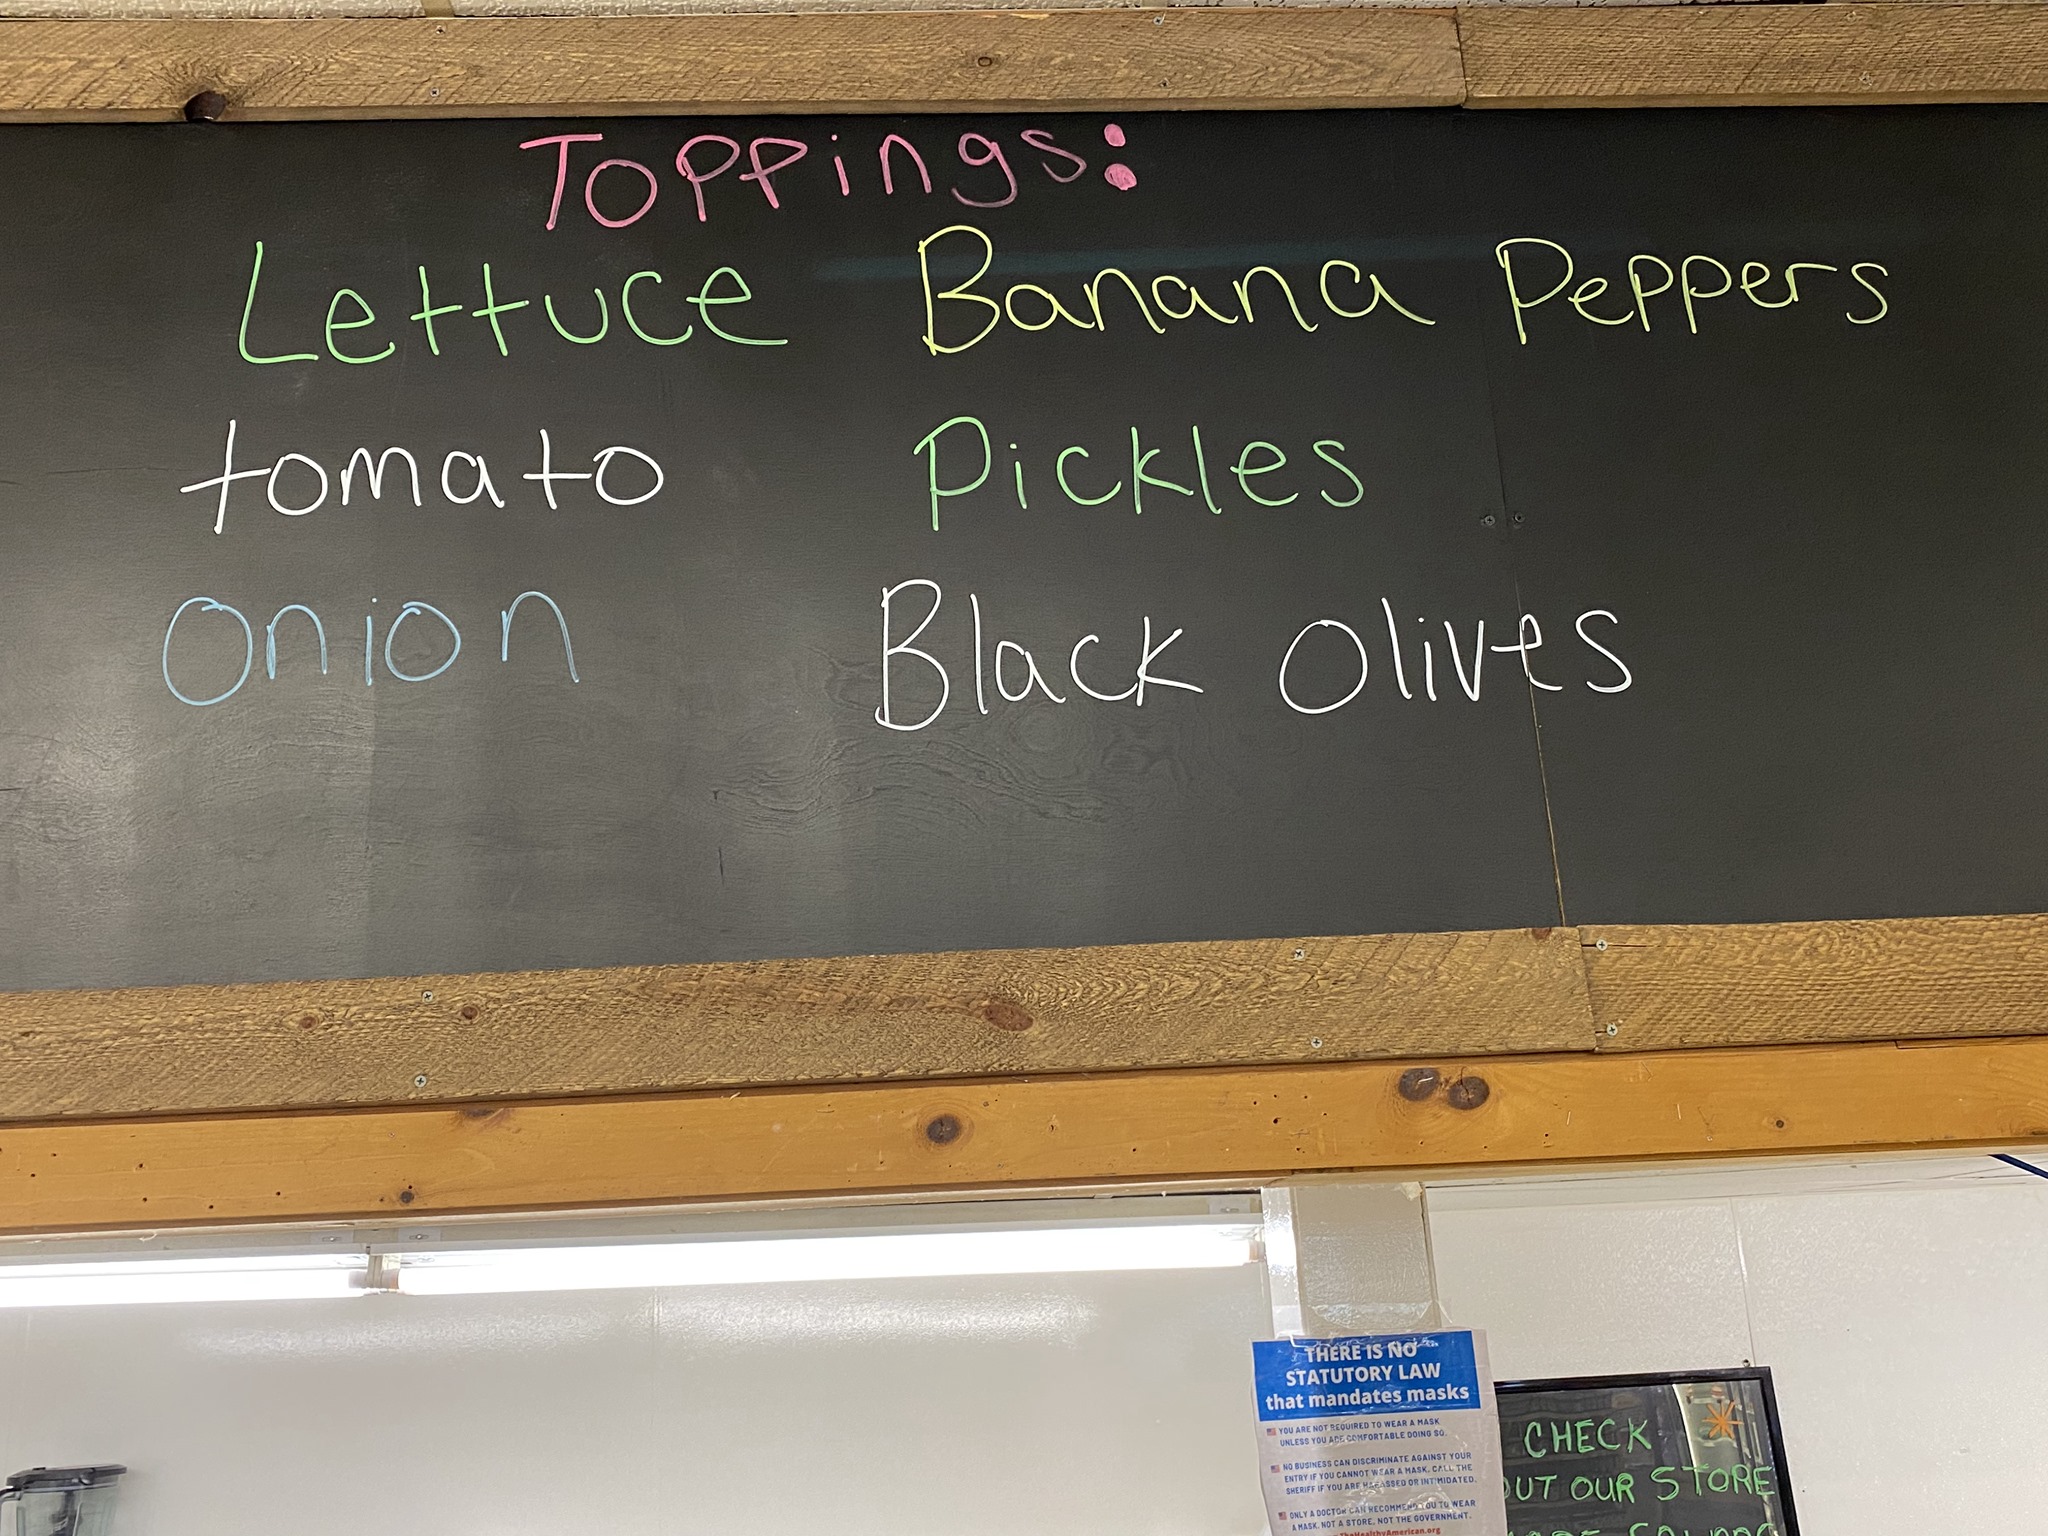 Toppings:
Lettuce Banana Peppers
tomato Pickles
Onion Black Olives
THERE IS NO
STATUTORY LAW
that mandates masks
YOU ARE NOT REQUIRED TO WEAR A MASK
UNLESS YOU ARE COMFORTABLE DOING SO.
NO BUSINESS CAN DISCRIMINATE AGAINST YOUR
ENTRY IF YOU CANNOT WEAR A MASK. CALL THE
SHERIFF IF YOU ARE HARASSED OR INTIMIDATED.
ONLY A DOCTOR CAN RECOMMEND YOU TO WEAR
A MASK, NOT A STORE, NOT THE GOVERNMENT.
TheHealthyAmerican.org
CHECK
OUT OUR STORE